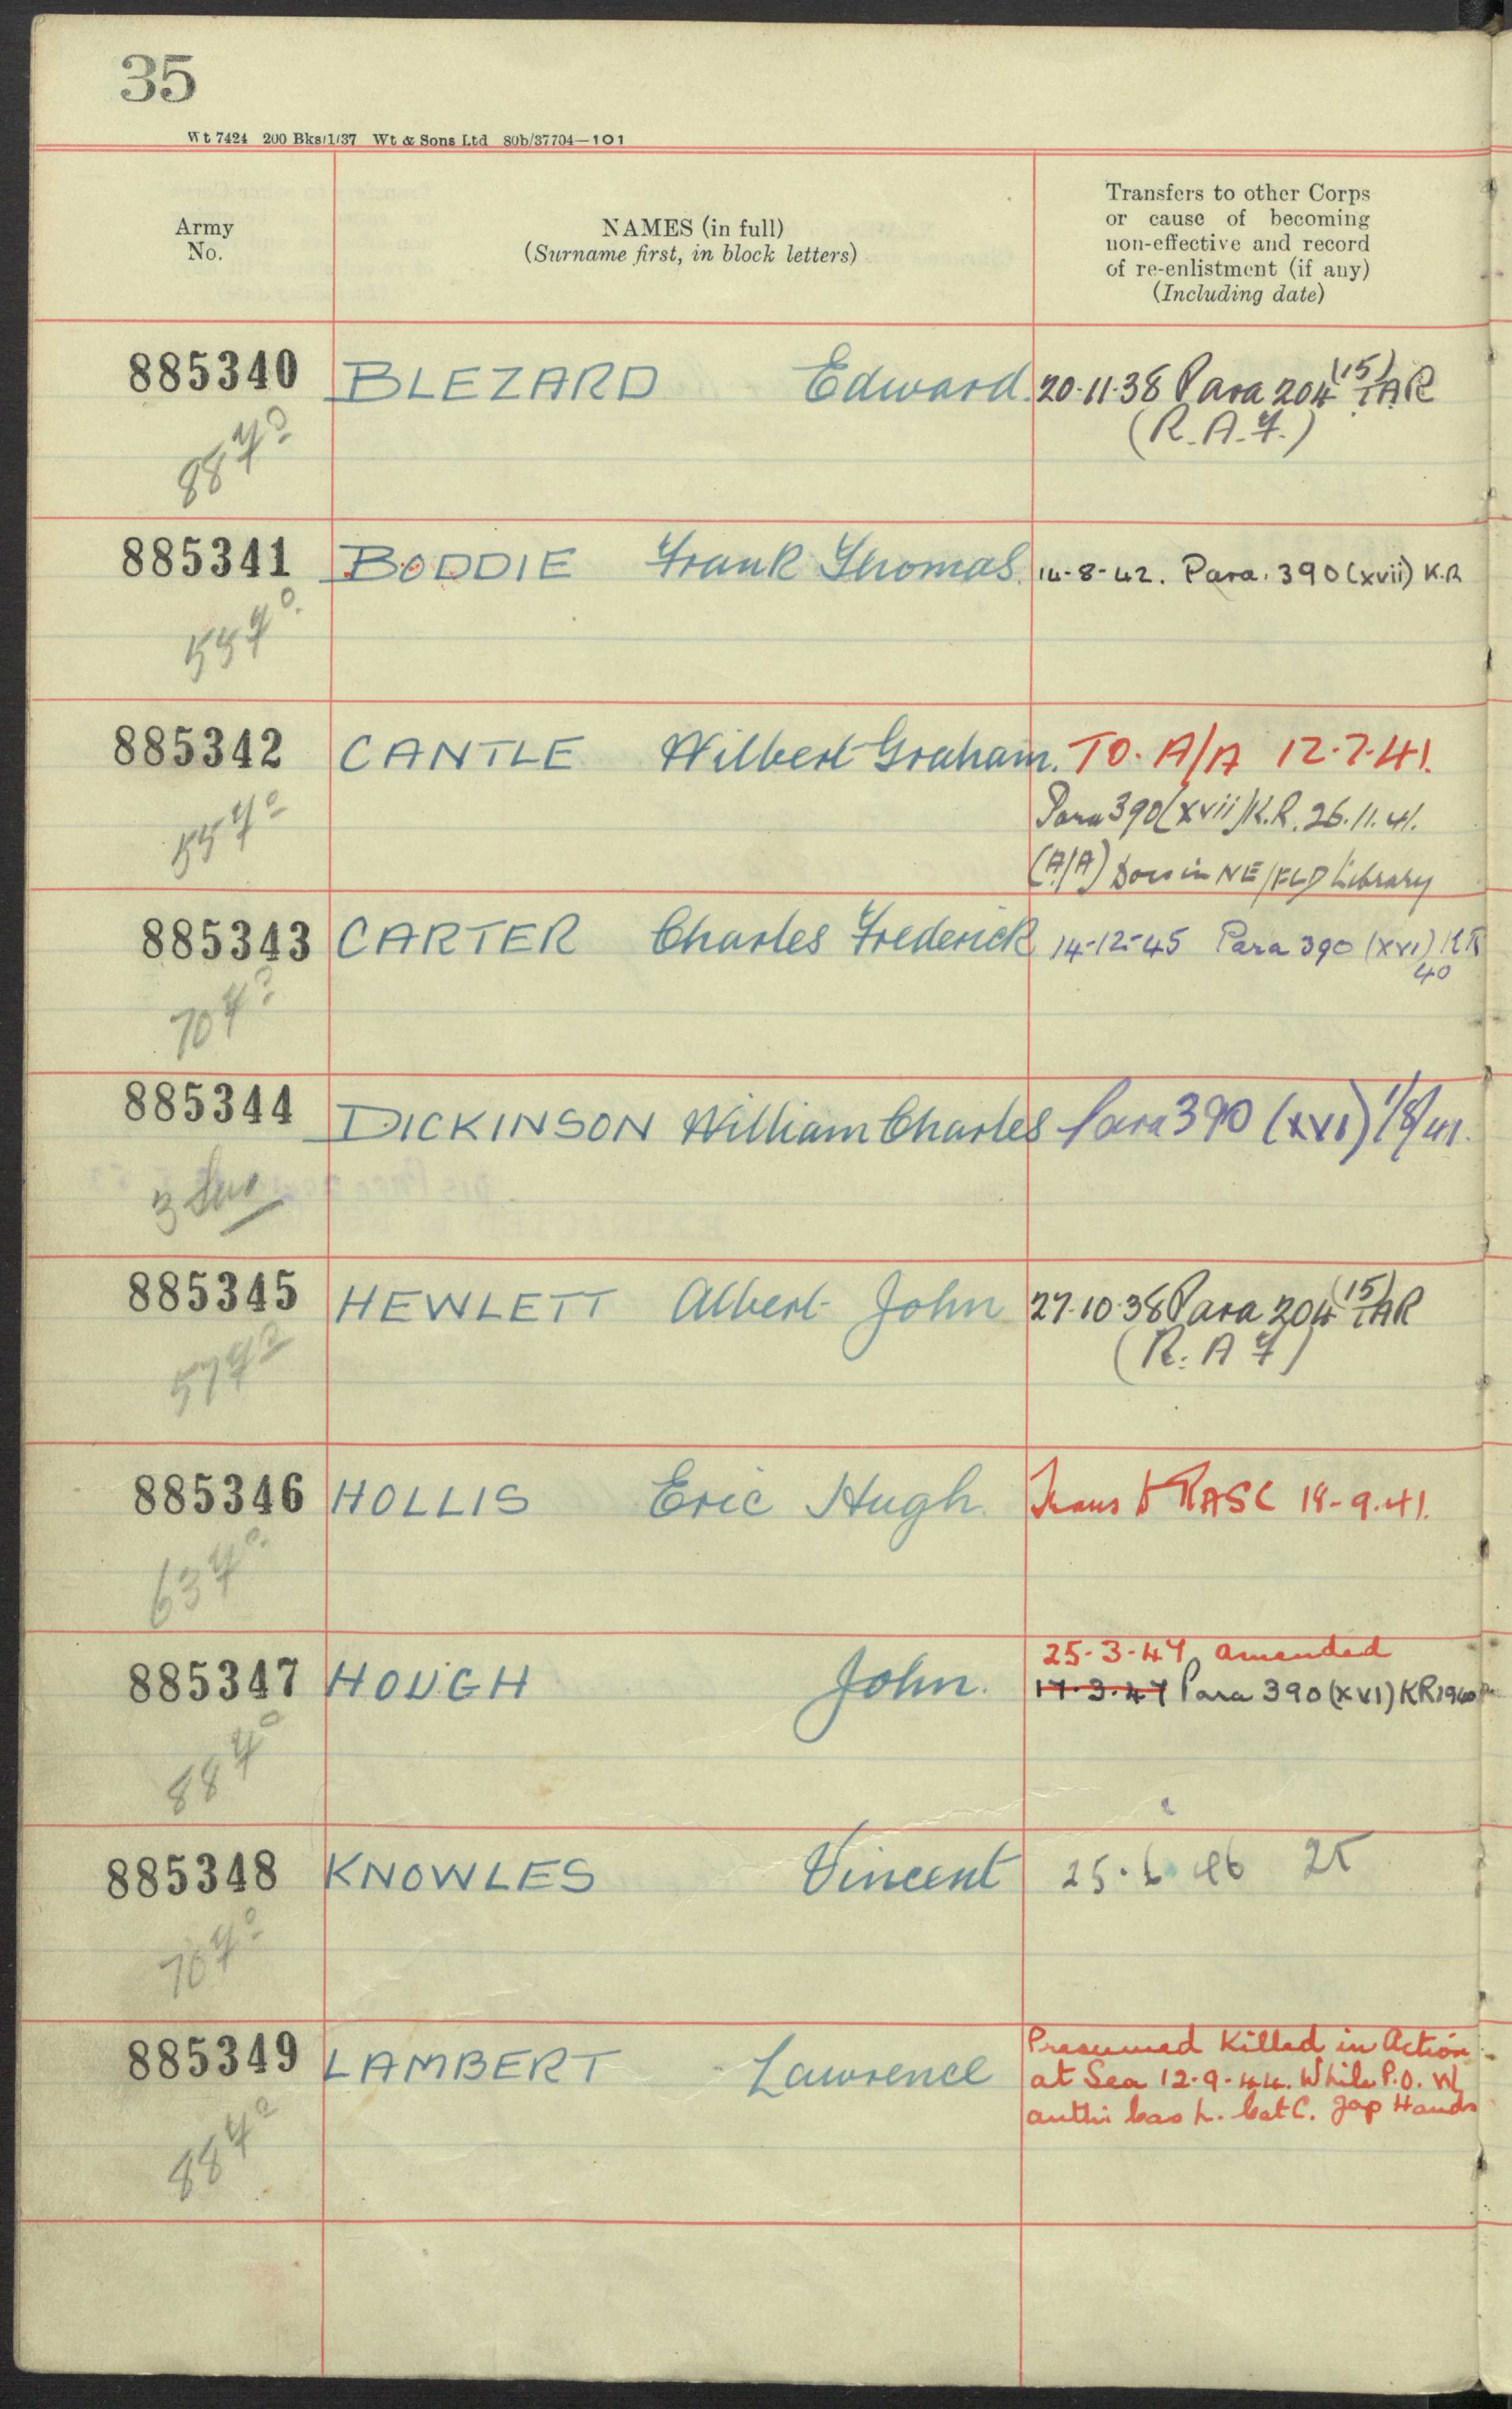 35
Wt 7424 200 Bks/1/37 Wt & Sons Ltd 80b/37704—101
Army
No.
NAMES (in full)
(Surname first, in block letters)
Transfers to other Corps
or cause of becoming
non-effective and record
of re-enlistment (if any)
(Including date)
885340 BLEZARD Edward. 20.11.38 Para 204 (15) TAR
(R.A.F.)
885341 BODDIE Frank Thomas. 14-8-42. Para. 390 (xvii) K.R
885342 CANTLE Wilbert Graham. TO. A/A 12.7.41.
Para 390 (xvii) K.R. 26.11.41.
(A/A) Docs in NE/FLD Library
885343 CARTER Charles Frederick 14-12-45 Para 390 (XVI) KR
40
885344 DICKINSON William Charles Para 390 (XVI)
885345 HEWLETT Albert John 27.10.38 Para 204 (15) TAR
(R.A.F)
885346 HOLLIS Eric Hugh. Trans to RASC 18-9.41.
25-3-47 amended
885347 HOUGH John. 17.3.47 Para 390 (XVI) KR 1940
885348 KNOWLES Vincent 25.6.46
885349 LAMBERT Lawrence
Presumed Killed in Action
at Sea 12-9-44. While P.O.W
Cas L. Cat C. Jap Hands